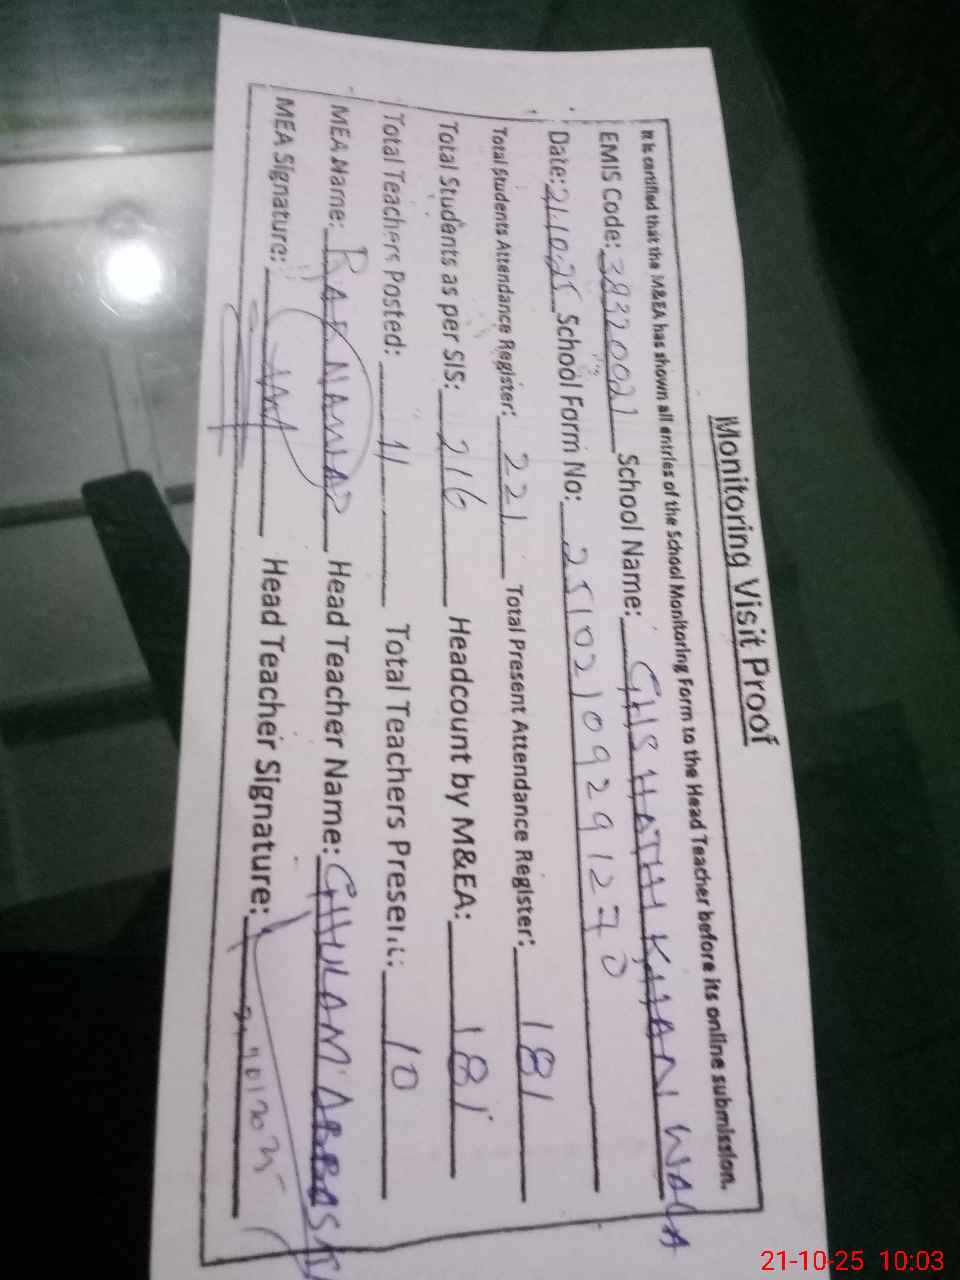 Monitoring Visit Proof
It is certified that the M&EA has shown all entries of the School Monitoring Form to the Head Teacher before its online submission.
EMIS Code: 38320021 School Name: GHS HATHI KHAN WALA
Date: 21.10.25 School Form No: 25102109291270
Total Students Attendance Register: 221 Total Present Attendance Register: 181
Total Students as per SIS: 216 Headcount by M&EA: 181
Total Teachers Posted: 11 Total Teachers Present: 10
MEA Name: Head Teacher Name: GHULAM ABBAS
MEA Signature: Head Teacher Signature:
21-10-25 10:03